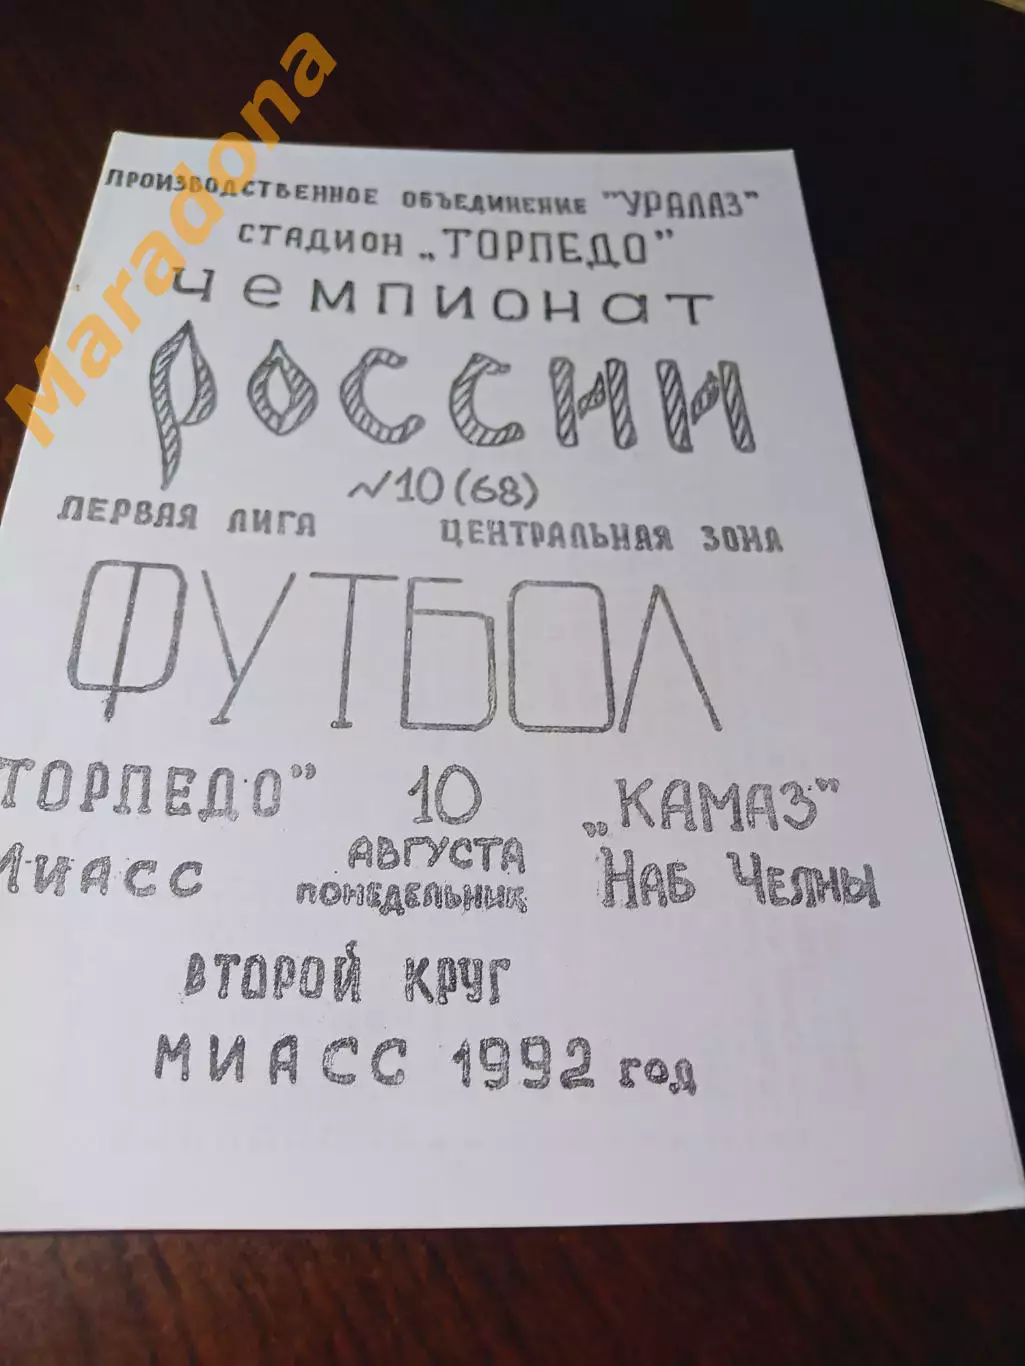 Maradona
ПРОИЗВОДСТВЕННОЕ ОБЪЕДИНЕНИЕ "УРАЛАЗ"
СТАДИОН „ТОРПЕДО"
ЧЕМПИОНАТ
РОССИИ
№10 (68)
ПЕРВАЯ ЛИГА ЦЕНТРАЛЬНАЯ ЗОНА
ФУТБОЛ
ТОРПЕДО" 10 „КАМАЗ"
МИАСС АВГУСТА НАБ ЧЕЛНЫ
ПОНЕДЕЛЬНИК
ВТОРОЙ КРУГ
МИАСС 1992 год